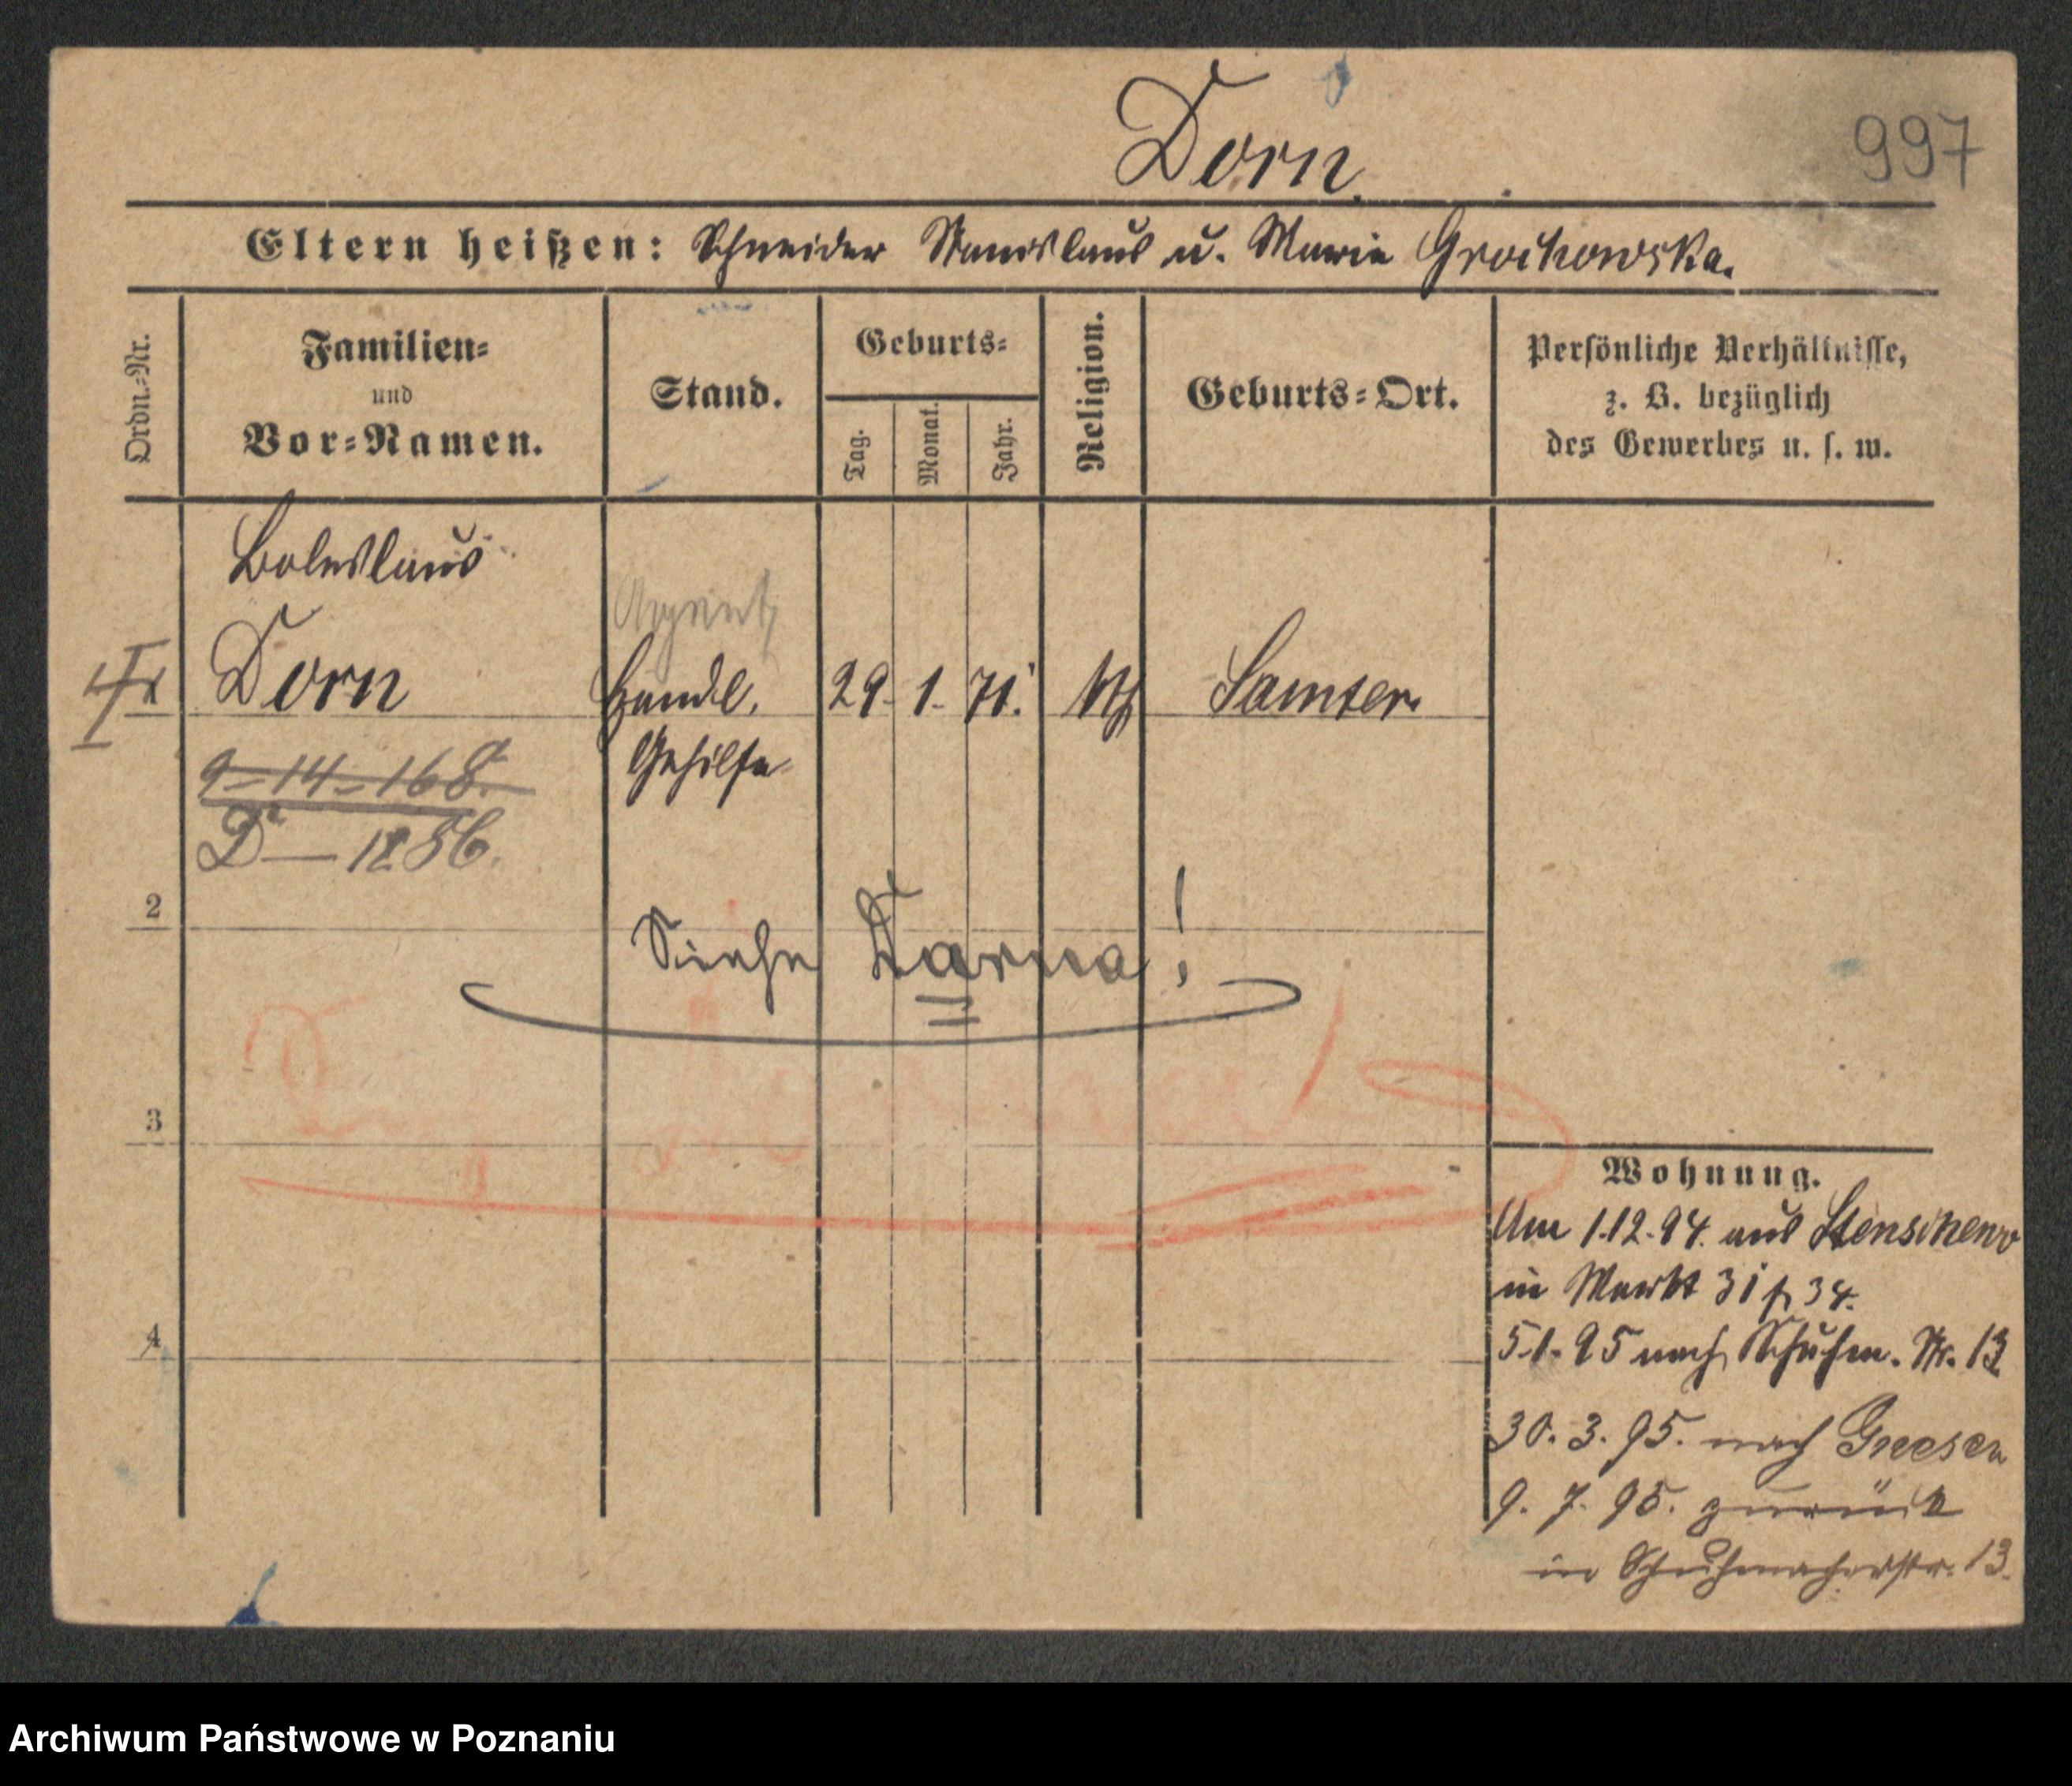 Dorn.
997
Eltern heißen: Schneider Stanislaus u. Marie Grochowska.
Ordn.-Nr.
Familien-
und
Vor-Namen.
Stand.
Geburts-
Tag.
Monat.
Jahr.
Religion.
Geburts-Ort.
Persönliche Verhältnisse,
z. B. bezüglich
des Gewerbes u. s. w.
Boleslaus
Agent
Dorn
Handl. 29. 1. 71. Samter.
Gehilfe
9-14-168.
D 1256.
2
Siehe Darna!
3
4
Wohnung.
Um 1.12.94. aus Stenschewo
in Markt 31 p 34.
5.1.95 nach Schuhm. Str. 13
30. 3. 95. nach Gnesen
9. 7. 95. zurück
in Schuhmacherstr. 13.
Archiwum Państwowe w Poznaniu